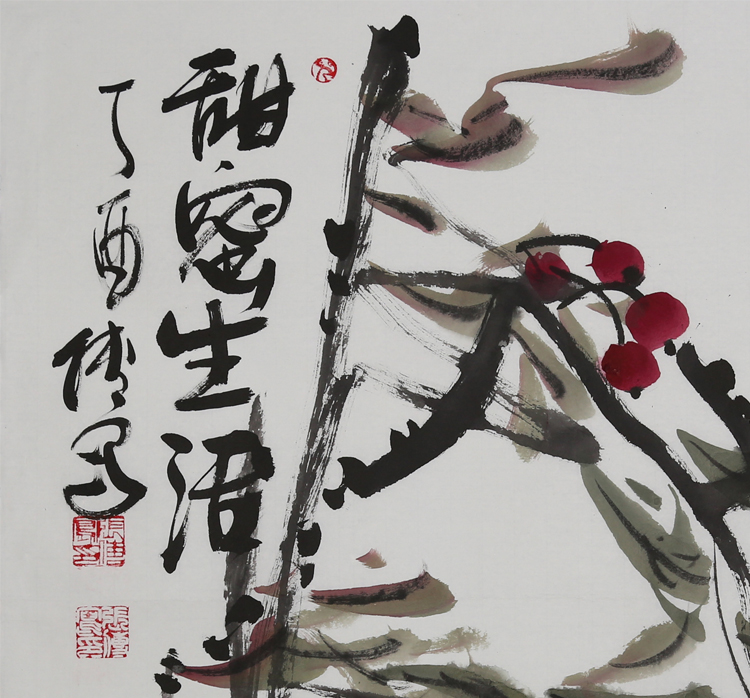 甜蜜生活
丁酉写